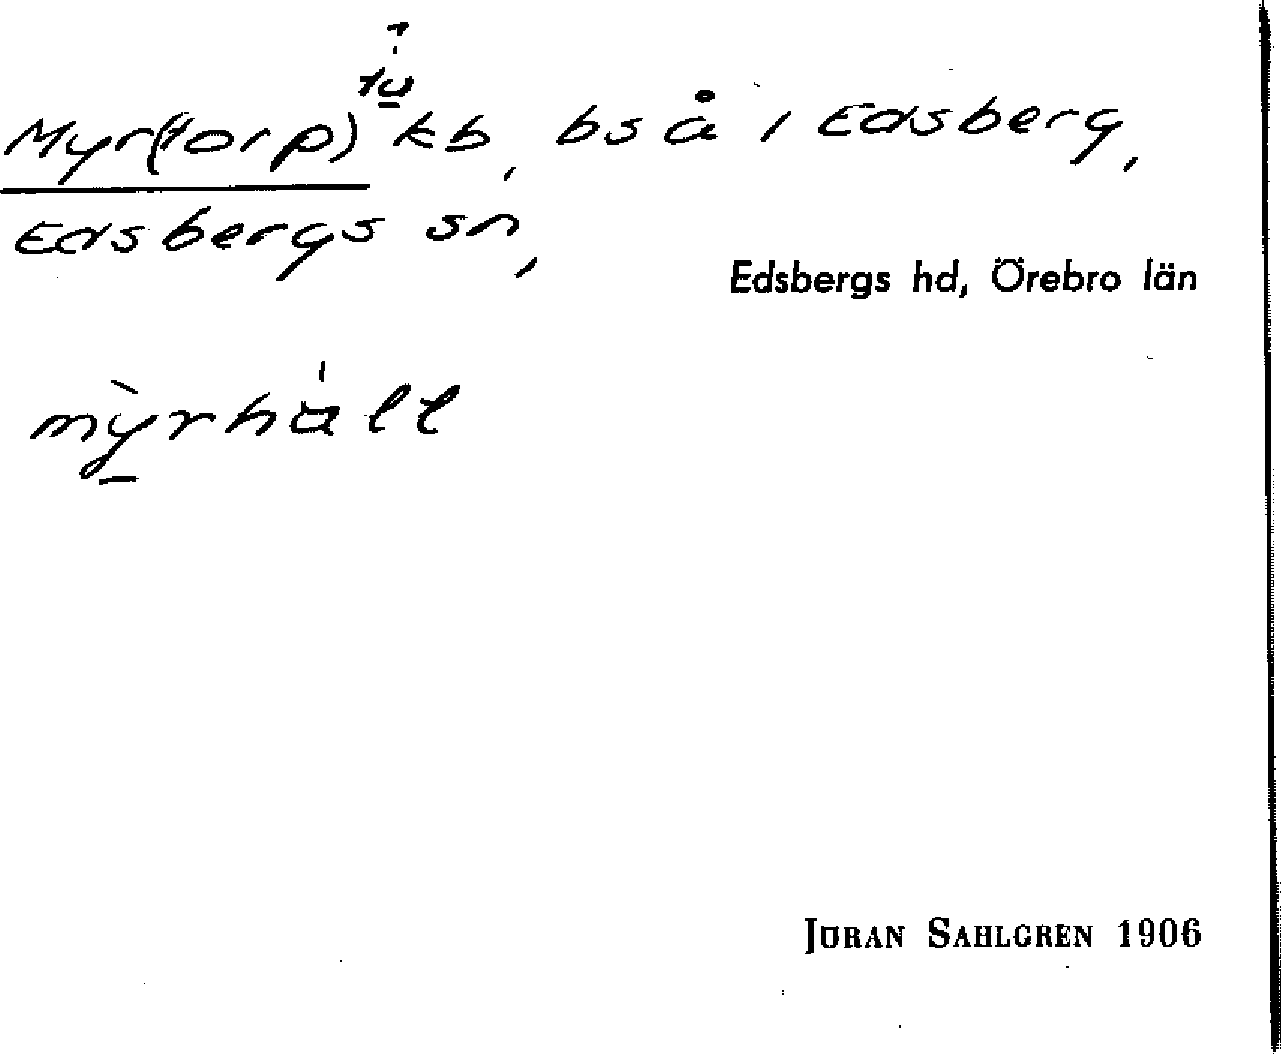 Myr(torp) kb, bs å i Edsberg,
Edsbergs sn,
Edsbergs hd, Örebro län
mỳrhált
JÖRAN SAHLGREN 1906